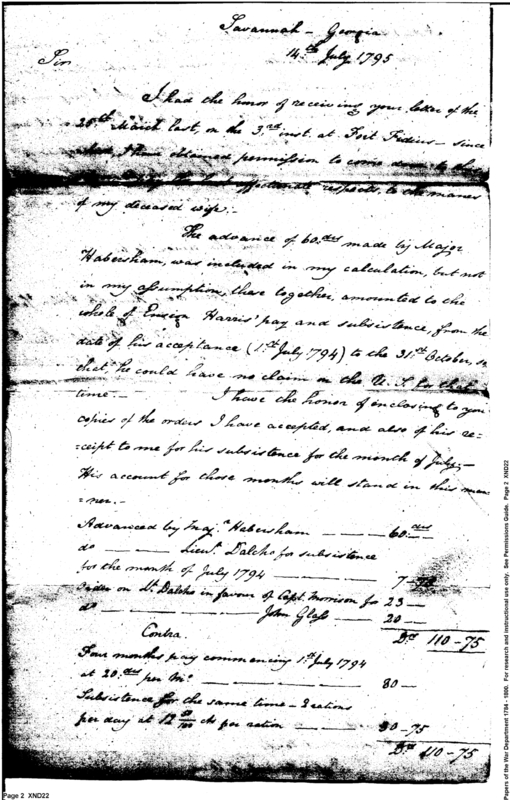 Savannah – Georgia
14.th July 1795
Sir
I had the honor of receiving your letter of the
20th March last, on the 3.rd inst. at Fort Fidius – since
when, I have obtained permission to come down to
respects, to the manes
of my deceased wife. –
The advance of 60. drs made by Major
Habersham, was included in my calculation, but not
in my assumption, these together, amounted to the
whole of Ensign Harris' pay and subsistence, from the
date of his acceptance (1.st July 1794) to the 31.st October, so
that, he could have no claim on the U. S. for that
time. – I have the honor of enclosing to you
copies of the orders I have accepted, and also of his re=
=ceipt to me for his subsistence for the month of July; –
His account for those months will stand in this man
=ner. –
Advanced by Maj.r Habersham — — — 60. drs
do — — Lieut. Dalcho for subsistence
for the month of July 1794 — — — 7 – 75
Order on Lt. Dalcho in favour of Capt. Morrison for 23 —
do — — — John Glass — 20 —
Drs 110 – 75
Contra
Four months pay commencing 1.st July 1794
at 20. drs per Mo. — — — 80 —
Subsistence for the same time – 2 rations
per day at 12 50/100 cts per ration — — 30 – 75
Drs 110 – 75
Page 2 XND22
Papers of the War Department 1784 - 1800. For research and instructional use only. See Permissions Guide. Page 2 XND22